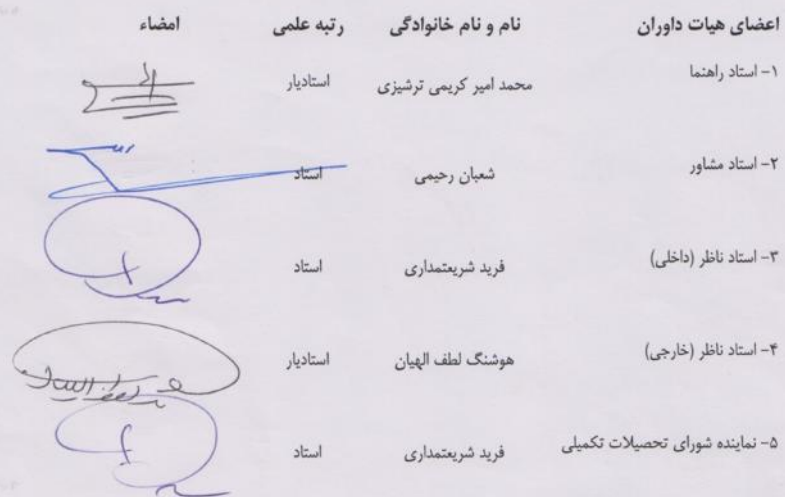 اعضای هیات داوران نام و نام خانوادگی رتبه علمی امضاء
۱- استاد راهنما محمد امیر کریمی ترشیزی استادیار
۲- استاد مشاور شعبان رحیمی استاد
۳- استاد ناظر (داخلی) فرید شریعتمداری استاد
۴- استاد ناظر (خارجی) هوشنگ لطف الهیان استادیار
۵- نماینده شورای تحصیلات تکمیلی فرید شریعتمداری استاد